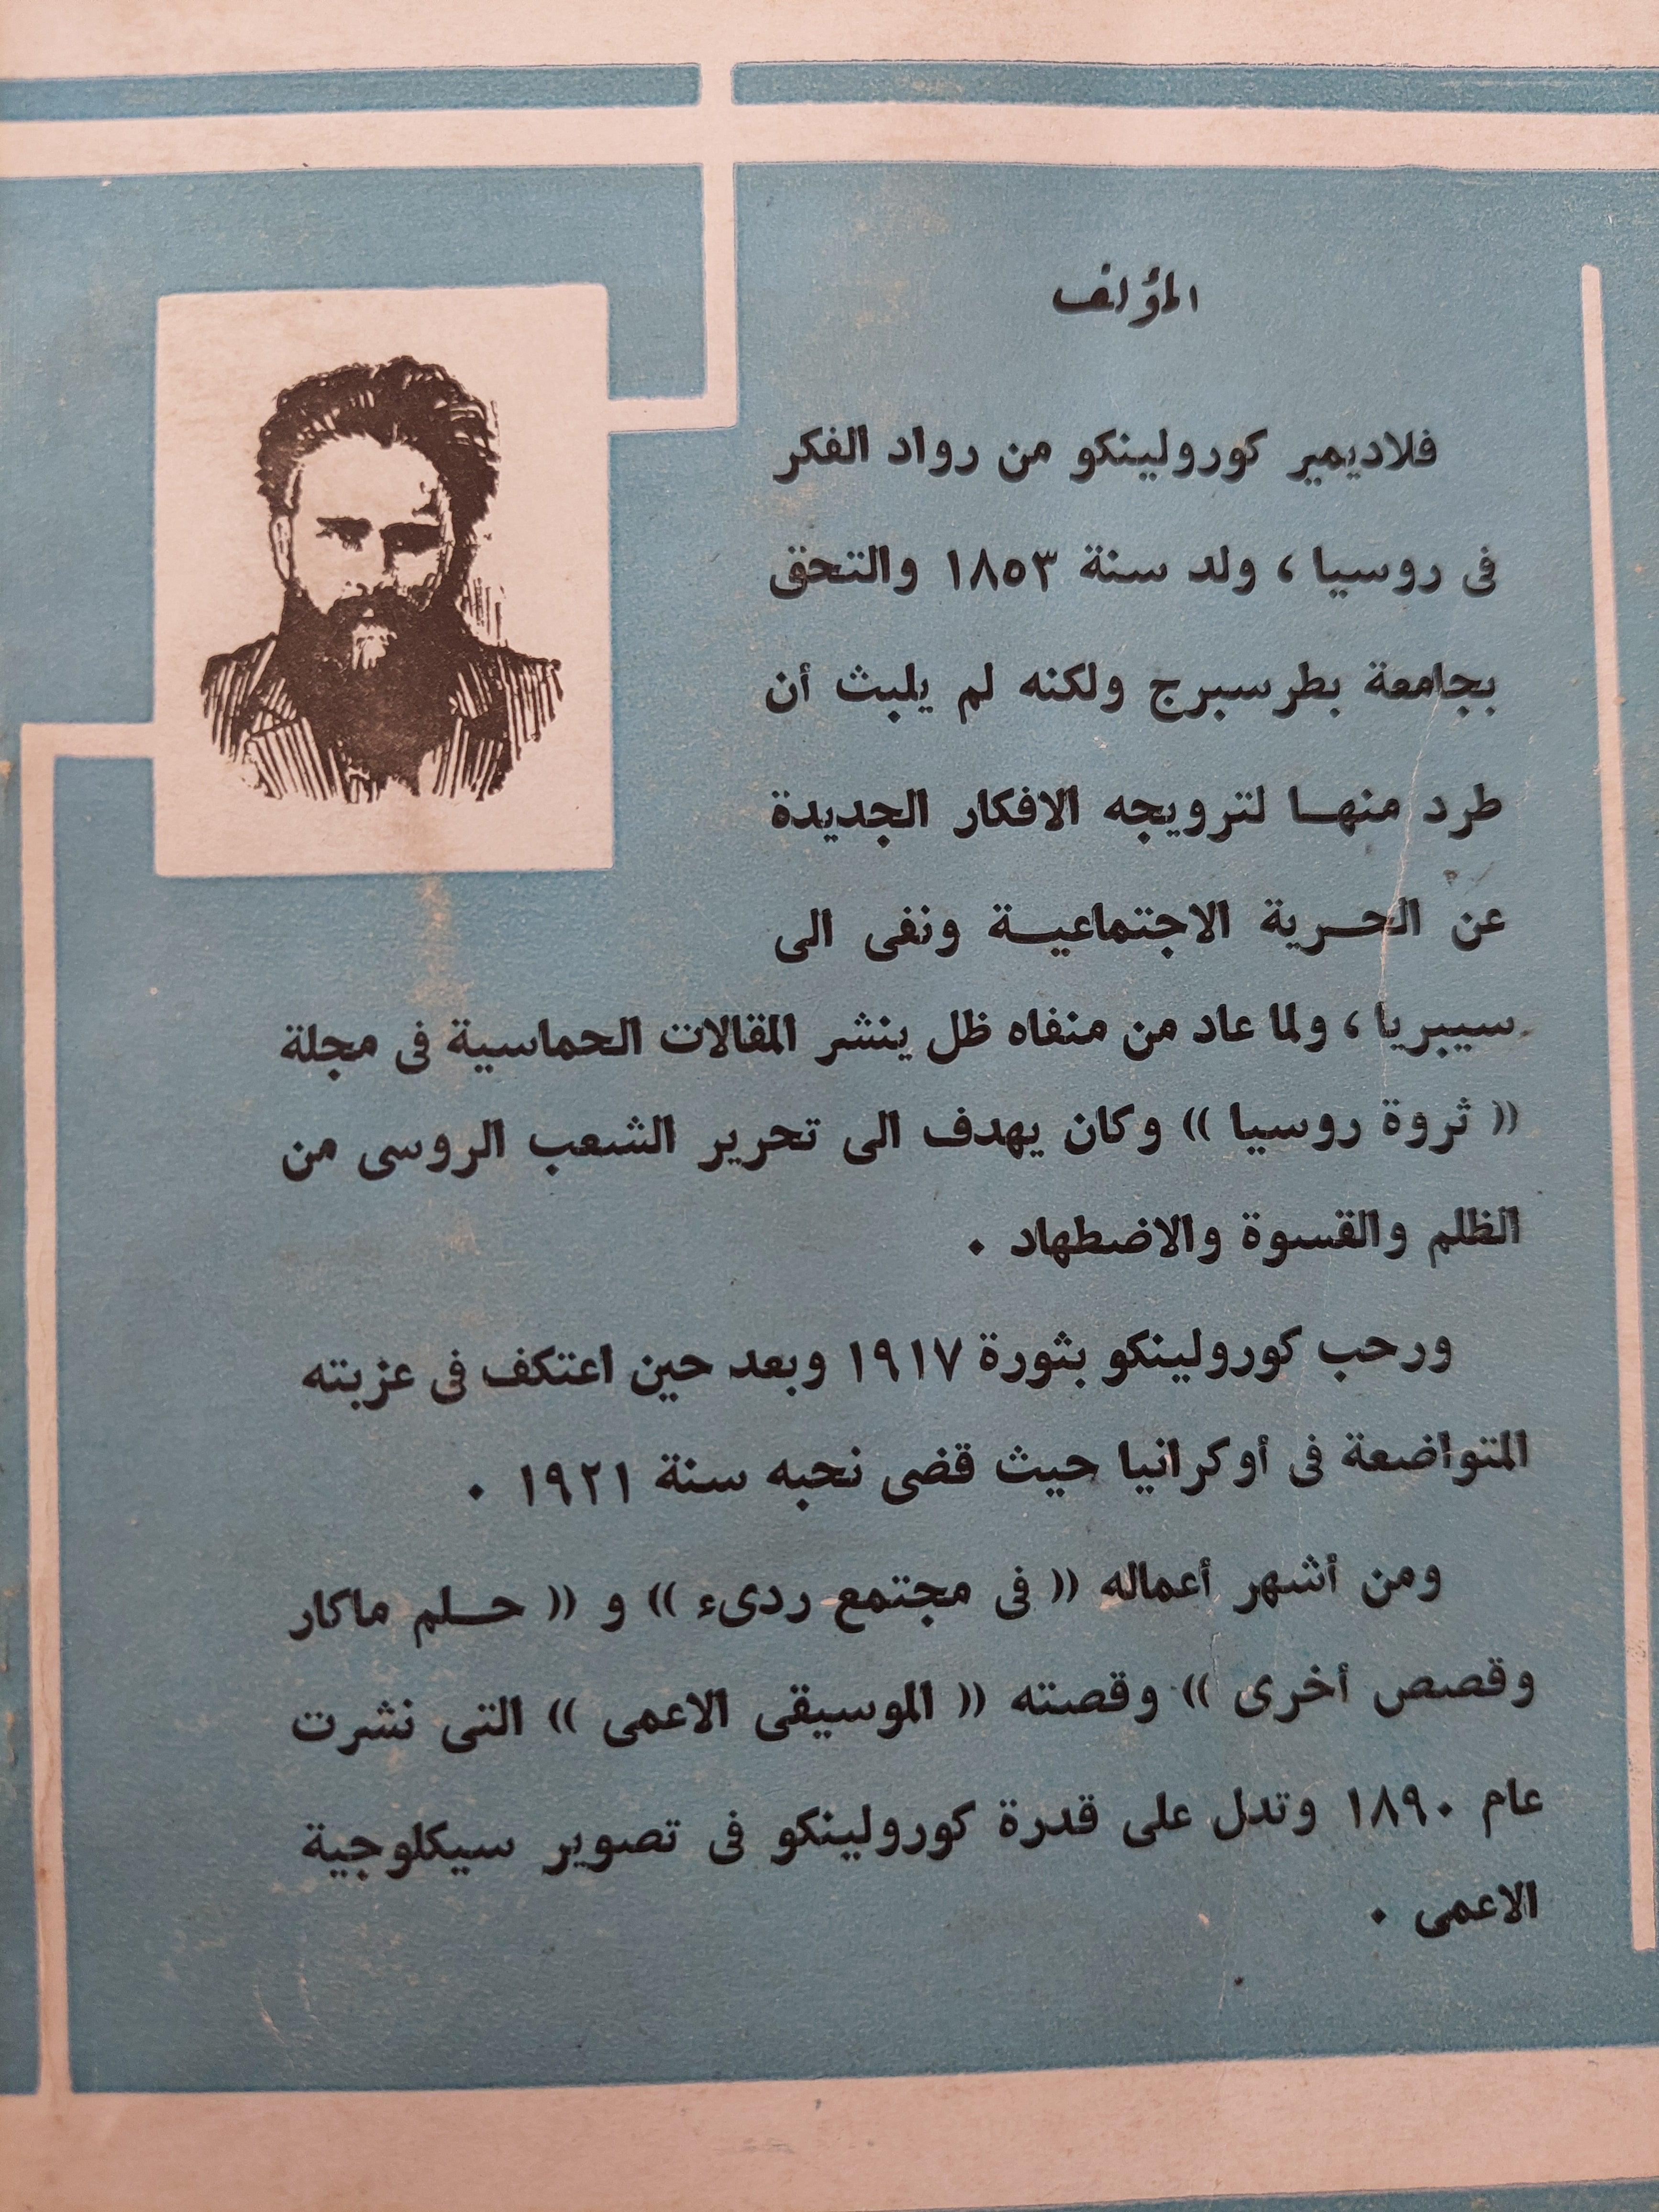 المؤلف
فلاديمير كورولينكو من رواد الفكر
فى روسيا ، ولد سنة ١٨٥٣ والتحق
بجامعة بطرسبرج ولكنه لم يلبث أن
طرد منهـا لترويجه الافكار الجديدة
عن الحـرية الاجتماعيـة ونفى الى
سيبريا ، ولما عاد من منفاه ظل ينشر المقالات الحماسية فى مجلة
(( ثروة روسيا )) وكان يهدف الى تحرير الشعب الروسى من
الظلم والقسوة والاضطهاد ٠
ورحب كورولينكو بثورة ١٩١٧ وبعد حين اعتكف فى عزبته
المتواضعة فى أوكرانيا حيث قضى نحبه سنة ١٩٢١ ٠
ومن أشهر أعماله (( فى مجتمع ردىء )) و (( حـلم ماكار
وقصص أخرى )) وقصته (( الموسيقى الاعمى )) التى نشرت
عام ١٨٩٠ وتدل على قدرة كورولينكو فى تصوير سيكلوجية
الاعمى ٠